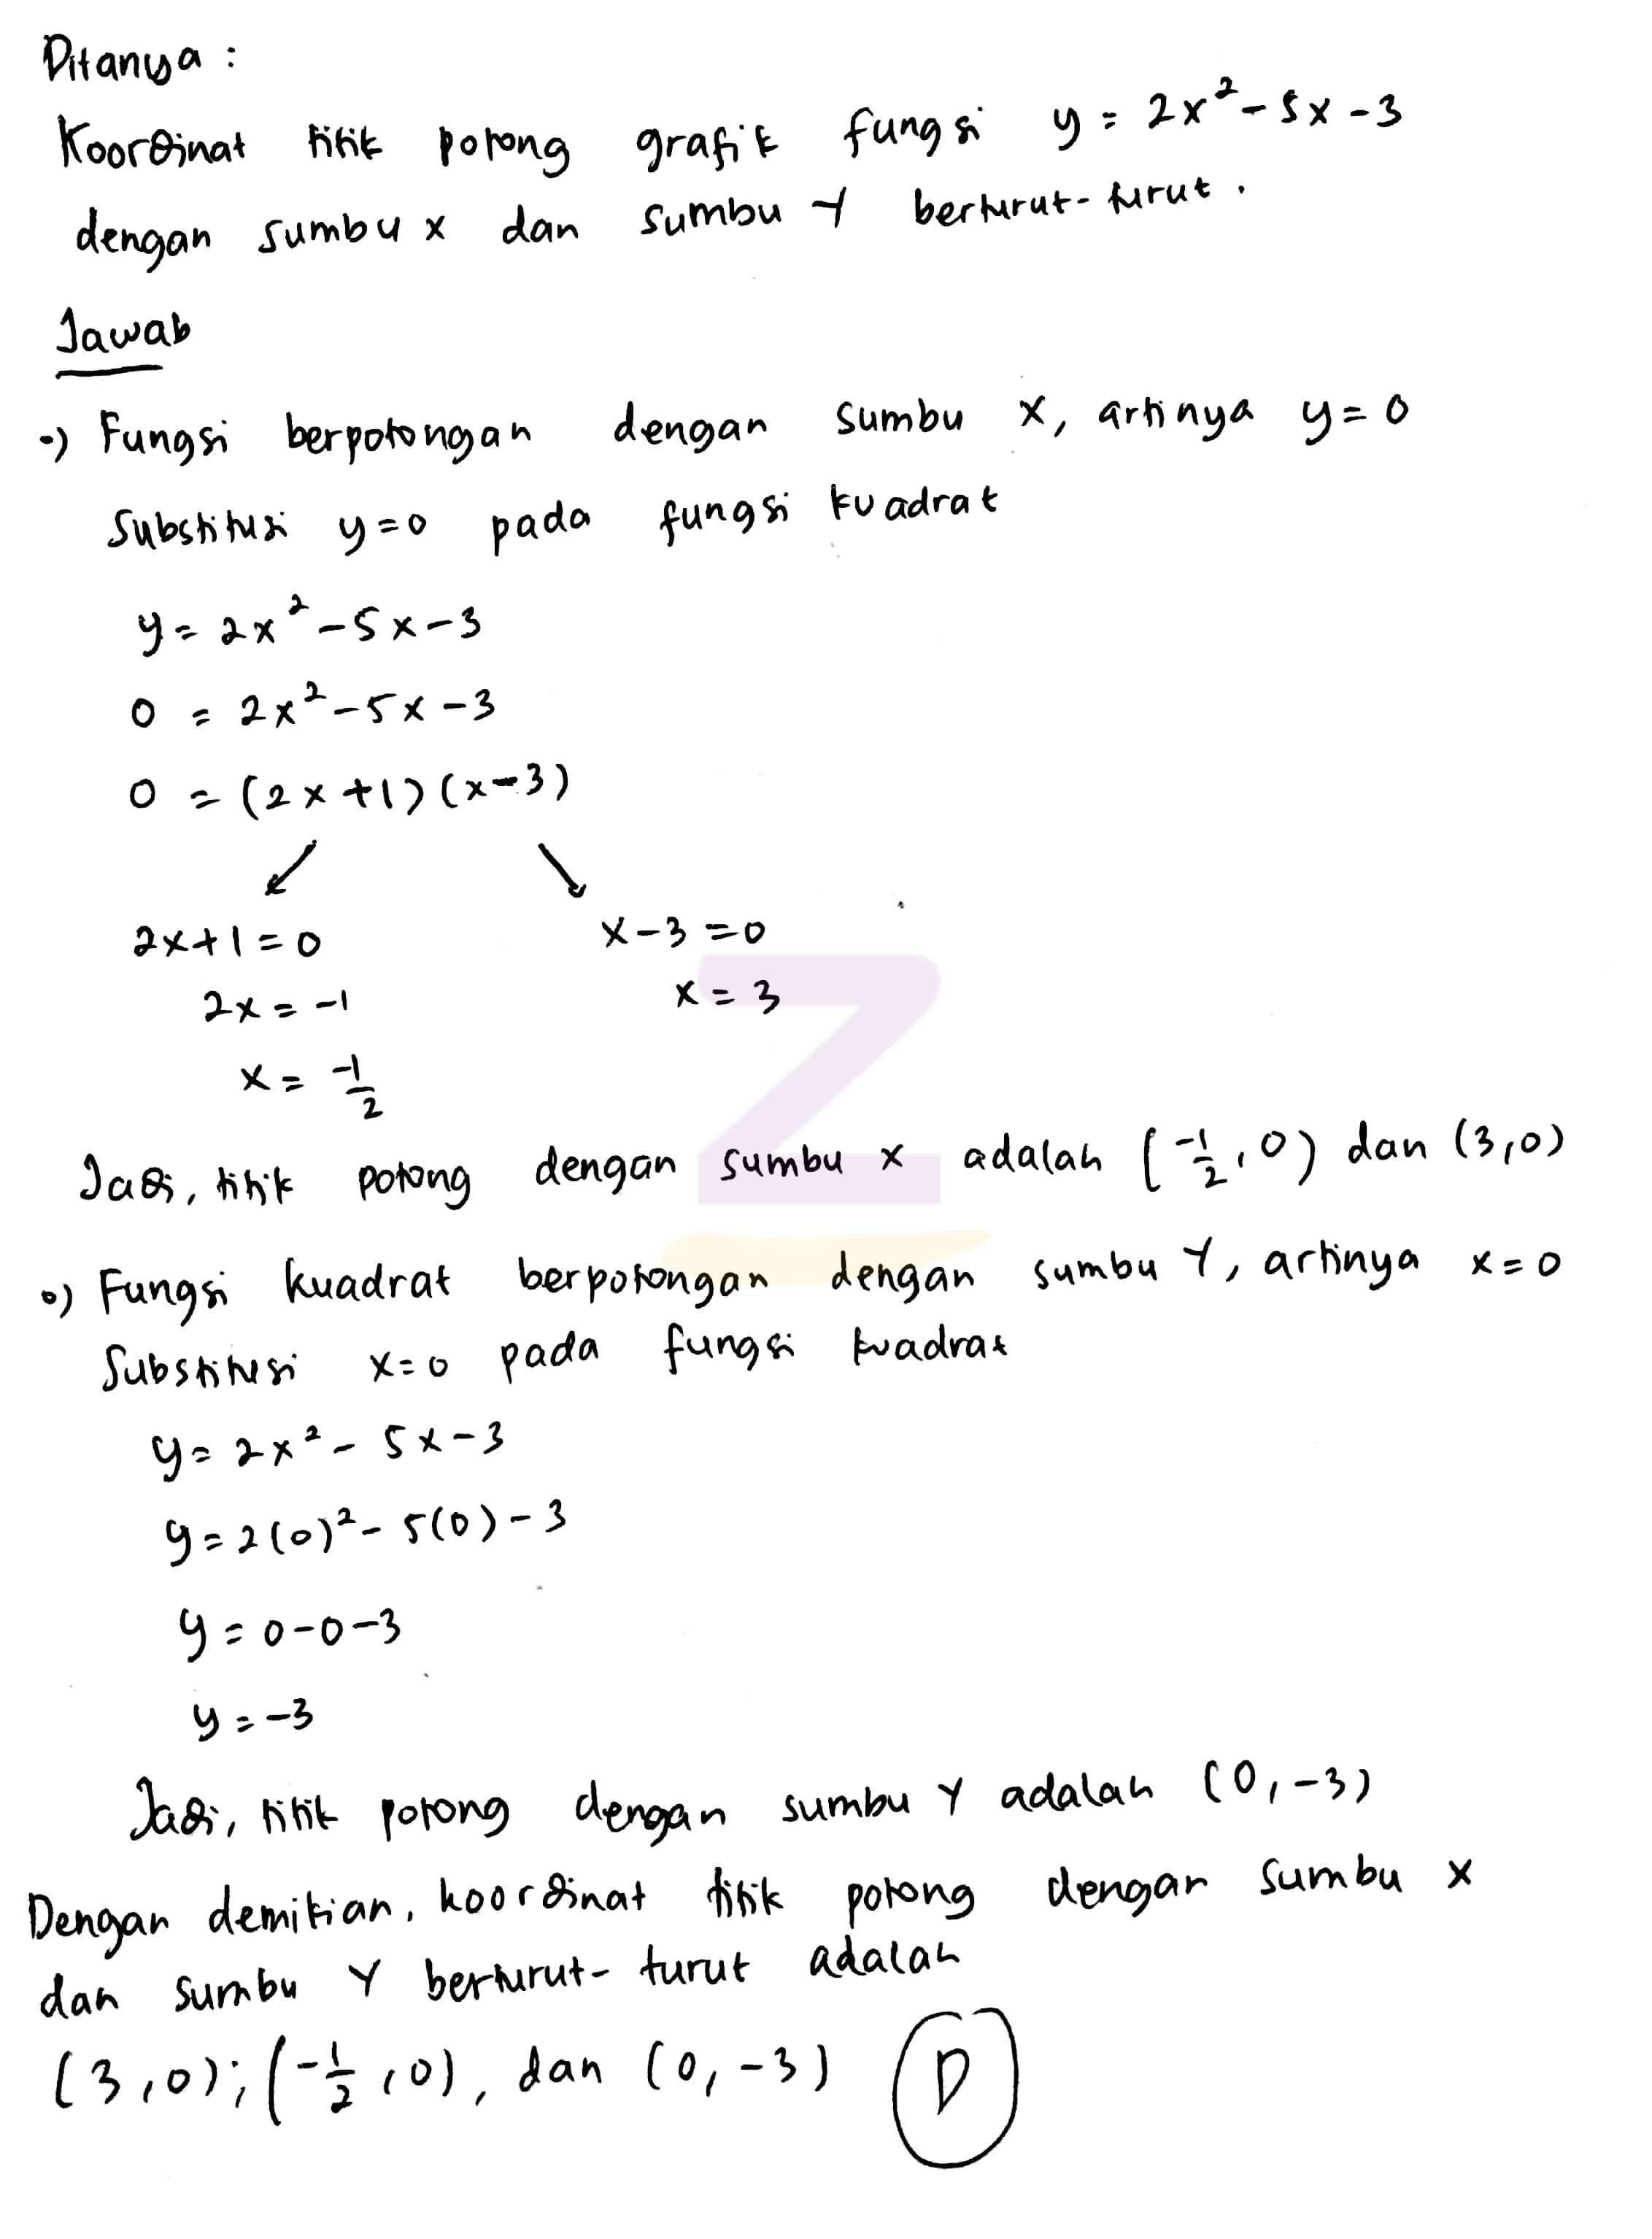 Ditanya :
Koordinat titik potong grafik fungsi y = 2x² - 5x - 3
dengan sumbu x dan sumbu Y berturut-turut.
Jawab
•) Fungsi berpotongan dengan sumbu X, artinya y = 0
Substitusi y=0 pada fungsi kuadrat
y = 2x² - 5x - 3
0 = 2x² - 5x - 3
0 = (2x + 1) (x - 3)
↙ ↘
2x + 1 = 0 x - 3 = 0
2x = -1 x = 3
x = -1/2
Jadi, titik potong dengan sumbu x adalah (-1/2, 0) dan (3,0)
•) Fungsi kuadrat berpotongan dengan sumbu Y, artinya x = 0
Substitusi x=0 pada fungsi kuadrat
y = 2x² - 5x - 3
y = 2(0)² - 5(0) - 3
y = 0 - 0 - 3
y = -3
Jadi, titik potong dengan sumbu Y adalah (0, -3)
Dengan demikian, koordinat titik potong dengan sumbu x
dan sumbu Y berturut-turut adalah
(3,0); (-1/2, 0), dan (0, -3) D
Z